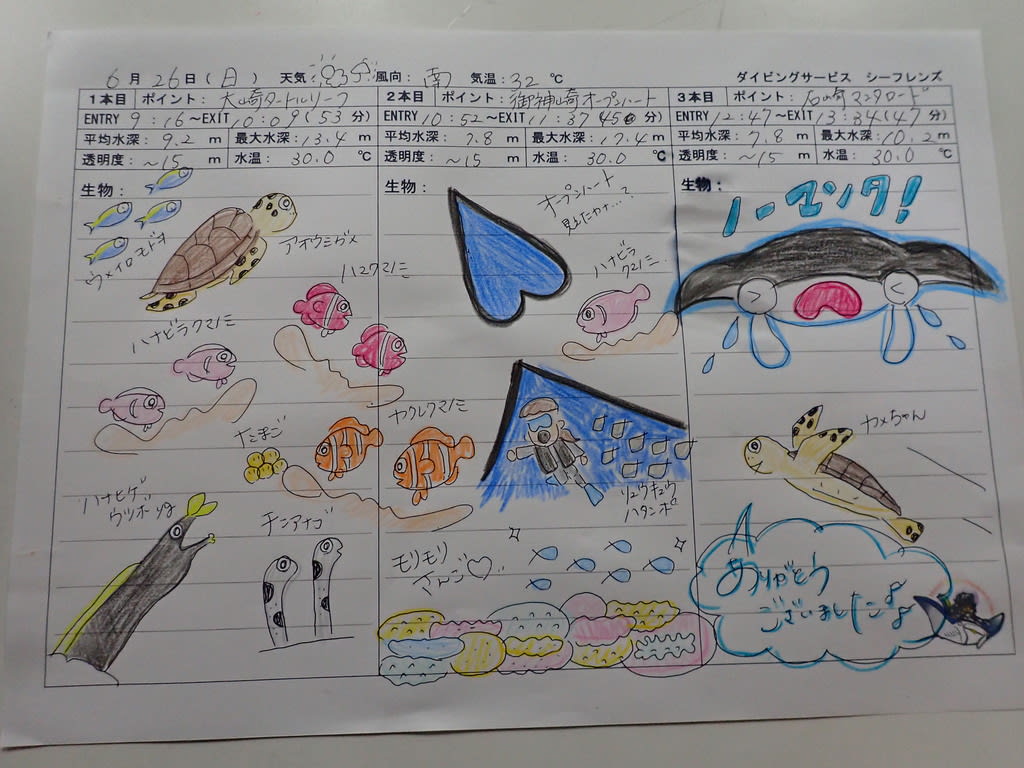 6月26日(日) 天気 風向:南 気温:32℃ ダイビングサービス シーフレンズ
1本目 ポイント:大崎タートルリーフ
ENTRY 9:16～EXIT 10:09(53分)
平均水深:9.2m 最大水深:13.4m
透明度:~15m 水温:30.0℃
生物:
ウメイロモドキ
アオウミガメ
ハマクマノミ
ハナビラクマノミ
たまご
カクレクマノミ
ハナヒゲ
ウツボyg
チンアナゴ
2本目 ポイント:御神崎オープンハート
ENTRY 10:52～EXIT 11:37 45分)
平均水深:7.8m 最大水深:17.4m
透明度:~15m 水温:30.0℃
生物:
オープンハート
見えたかナ…?
ハナビラ
クマノミ
リュウキュウ
ハタンポ
モリモリ
さんご♡
3本目 ポイント:石崎マンタロード
ENTRY 12:47～EXIT 13:34(47分)
平均水深:7.8m 最大水深:10.2m
透明度:~15m 水温:30.0℃
生物:
ノーマンタ!
カメちゃん
ありがとう
ございました♪